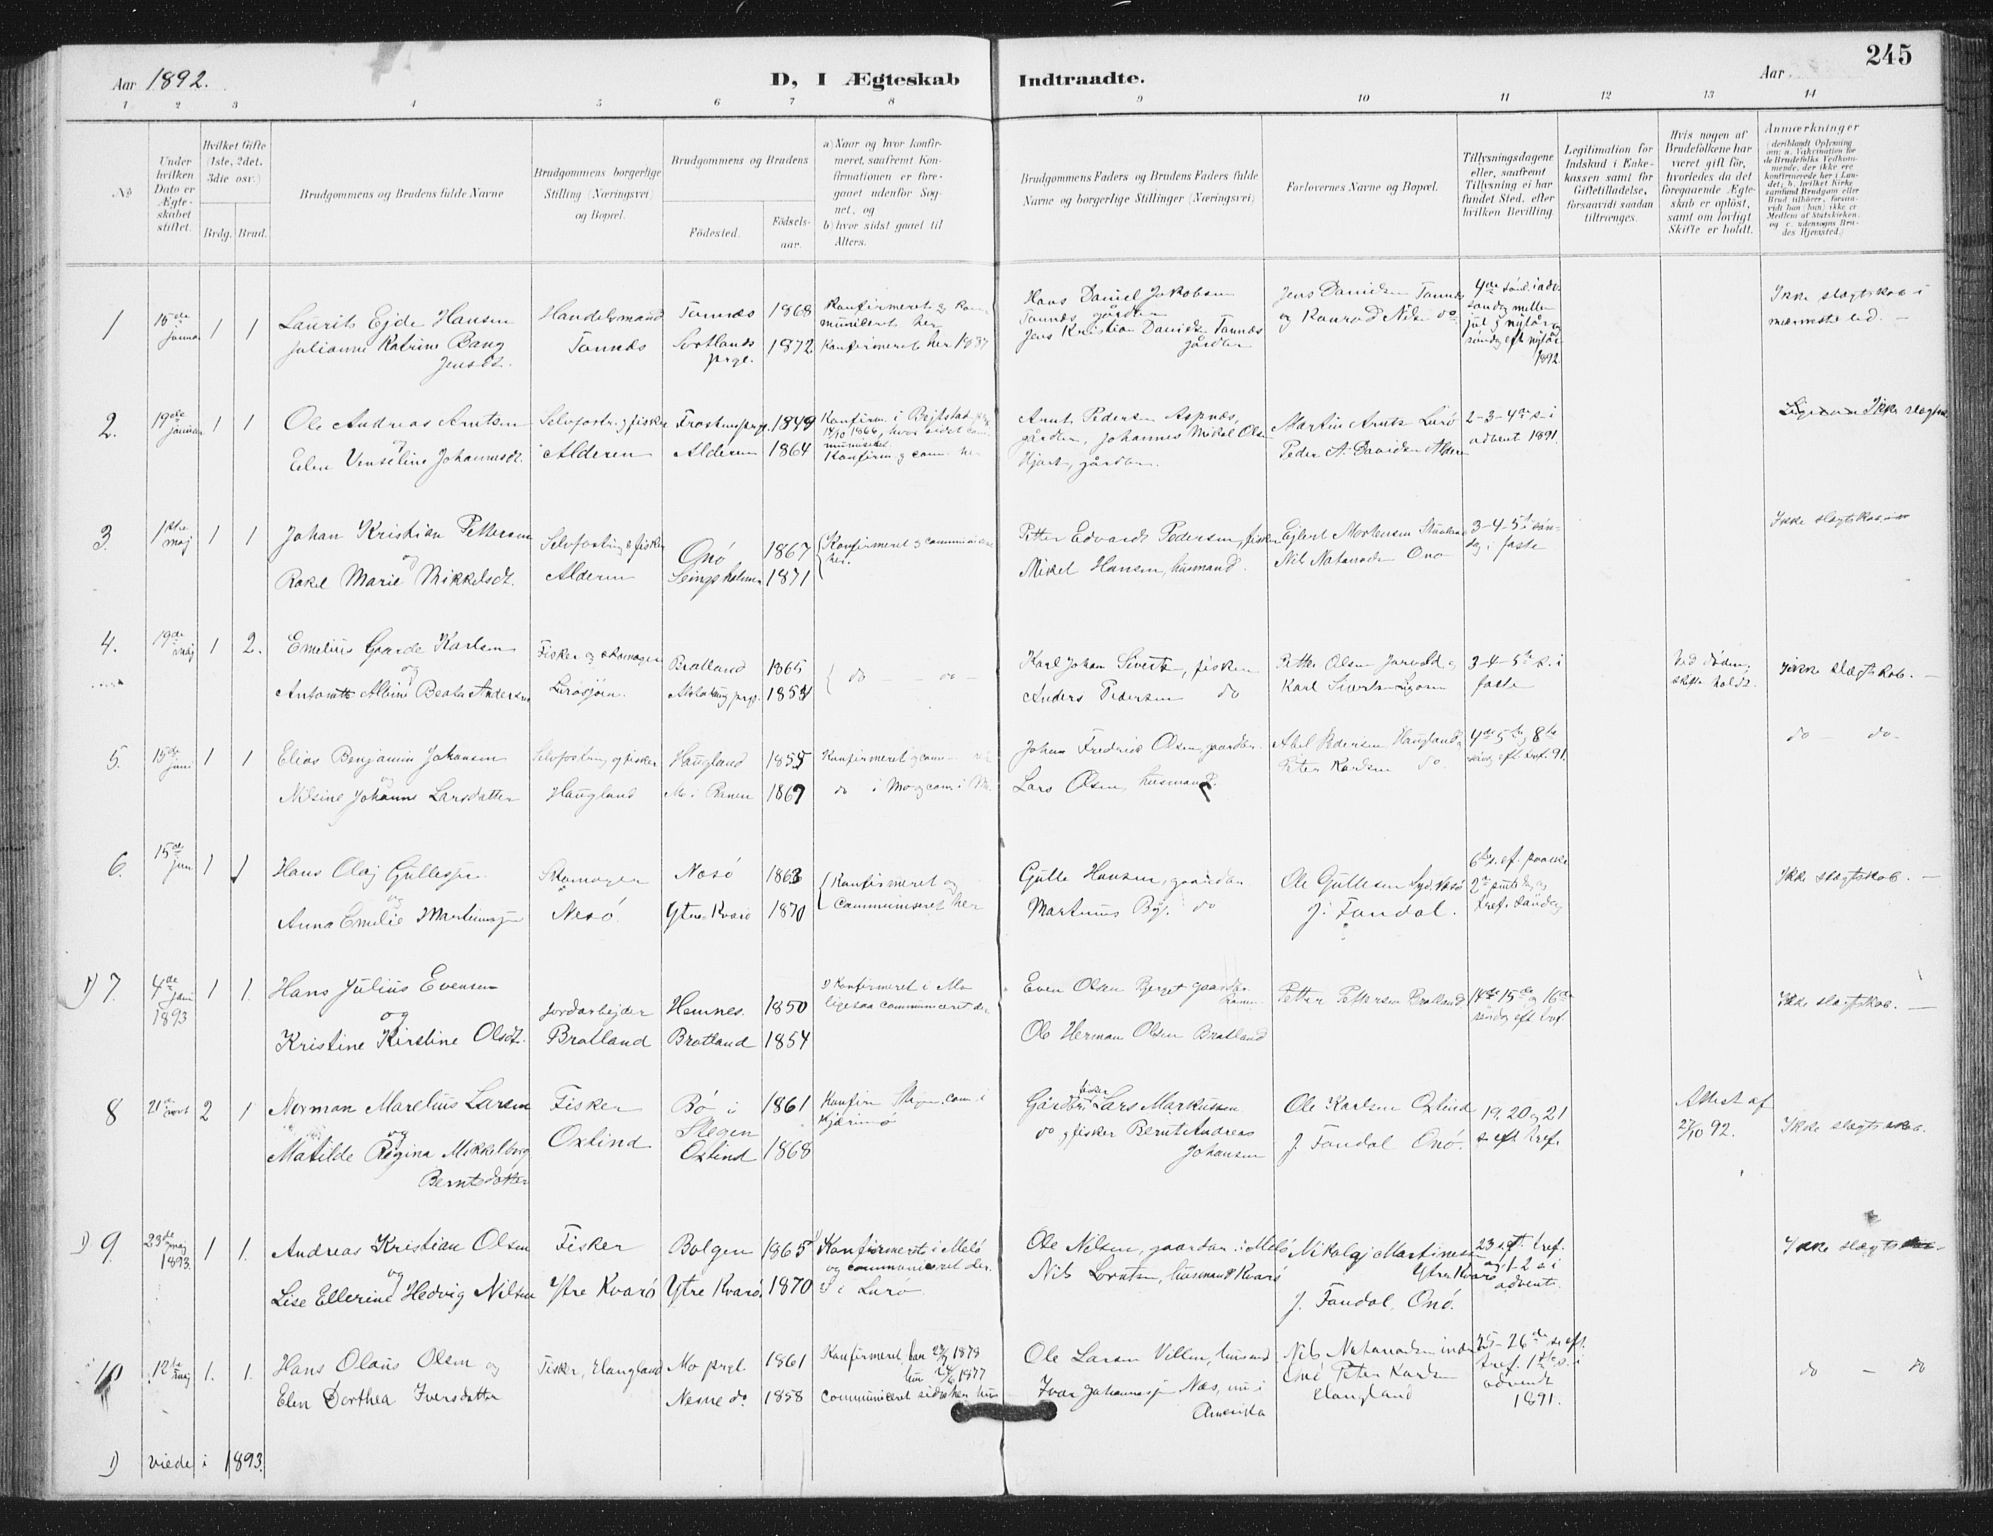 Aar 1892.
D, I Ægteskab Indtraadte.
Aar
245
1 2 3 4 5 6 7 8 9 10 11 12 13 14
No
Under hvilken Dato er Ægteskabet stiftet.
Hvilket Gifte (1ste, 2det, 3die osv.)
Brdg. Brud.
Brudgommens og Brudens fulde Navne
Brudgommens borgerlige Stilling (Næringsvei) og Bopæl.
Brudgommens og Brudens
Fødested.
Fødselsaar.
a) Naar og hvor konfirmeret, saafremt Konfirmationen er foregaaet udenfor Sognet, og
b) hvor sidst gaaet til Alters.
Brudgommens Faders og Brudens Faders fulde Navne og borgerlige Stillinger (Næringsvei)
Forlovernes Navne og Bopæl.
Tillysningsdagene eller, saafremt Tillysning ei har fundet Sted, efter hvilken Bevilling.
Legitimation for Indskud i Enkekassen samt for Giftetilladelse, forsaavidt saadan tiltrænges.
Hvis nogen af Brudefolkene har været gift før, hvorledes da det foregaaende Ægteskab er opløst, samt om lovligt Skifte er holdt.
Anmærkninger
(deriblandt Oplysning om: a. Vakcination for de Brudefolks Vedkommende, der ikke ere konfirmerede her i Landet; b. hvilket Kirkesamfund Brudgom eller Brud tilhører, forsaavidt han (hun) ikke er Medlem af Statskirken, og c. udensogns Brudes Hjemsted.)
1 15de januar 1 1
Laurits Ejde Hansen
Julianne Katrine Bang Jensdt.
Handelsmand
Tonnes
Tonnes 1868
Sortlands prgl. 1872
Konfirmeret og kommuniceret her
Konfirmeret her 1887
Hans Daniel Jakobsen Tonnes gårdbr
Jens Kristian Davidsen Tonnes gårdbr
Jens Davidsen Tonnes og Konrad Nilsen do
4de sønd. i adv. søndag mellem jul og nytår og søndag eft. nytår 1892.
Ikke slægtskab i nærmeste led. —
2. 19de januar 1 1
Ole Andreas Arntsen
og
Elen Venseline Johannesdt.
Selvfostr. og fisker
Alderen
Frostens prgl. 1849
Alderen 1864
Konfirm. i Bejtstad 14/10 1866, hvor sidst communiceret.
Konfirm. og com. her
Arnt Pedersen Aspnæs, gårdbr., Johannes Mikal Olsen Hjart, gårdbr.
Martin Arntz Lurö
Peder A. Davidsen Alderen
2-3-4de s. i advent 1891.
Ikke slægtsk.
3. 1ste maj 1 1
Johan Kristian Pettersen
og
Rakel Marie Mikkelsdt.
Selvfostring & fisker
Alderen
Onö 1867
Lejngsholmen 1871
Konfirmeret og communiceret her.
Petter Edvard Pedersen, fisker
Mikel Hansen, husmand.
Ejlert Mortensen
Nils Natanalsen Onö
3-4-5te søndag i faste
Ikke slægtskab
4. 19de maj 1 2.
Emelius Gaarde Karlsen
og
Antonette Albine Beate Andersen
Fisker og skomager
Lurösjöen.
Bratland 1865
prgl. 1854
do — do —
Karl Johan Sivertz, fisker
Anders Pedersen do
Petter Olsen
Karl Sivertsen
3-4-5te s. i faste
Ved døden, skifte holdt.
Ikke slægtskab. —
5. 15de juni 1 1
Elias Benjamin Johansen
og
Nilsine Johanne Larsdatter
Selvfostring og fisker
Haugland
Haugland 1855
Mo i Ranen 1867
Konfirmeret og com. her
do i Mo og com. i
Johan Fredrik Olsen, gaardbr.
Lars Olsen, husmand.
Abel Pedersen Haugland
Peter Karlsen do.
4de 5te og 8te søndag eft. tref. 91.
do — do.
6. 15de juni 1 1
Hans Olaj Gullesen
og
Anna Emelie Martinusen
Skomager
Nesö.
Nesö 1863
Ytre Kvarö 1870
Konfirmeret og communiceret her
Gulle Hansen, gaardbr
Martinus Böj. do
Ole Gullesen Syd. Nesö
J. Fandal.
6te s. ef. paaske 2den pintsdag og tref. söndag
Ikke slægtskab. —
1) 7. 4de jan. 1893 1 1.
Hans Julius Evensen
og
Kristine Kirstine Olsdt.
Jordarbejder
Bratland
Hemnes. 1850
Bratland 1854
Konfirmeret i Mo ligesaa communiceret der
Even Olsen Berget gaardbr. Ranen.
Ole Herman Olsen Bratland
Petter Pettersen Bratland
14de 15de og 16de søndag eft. tref.
Ikke slægtskab. —
8 21de novt 2 1
Norman Marelius Larsen
og
Matilde Regina Mikkelborg Berntsdatter
Fisker
Oxtind
Bö i Stegen 1861
Oxtind 1868
Konfirm. Stegen, com. i Kjærinö
Gårdbr fisker Lars Markussen
do og fisker Bernt Andreas Johansen
Ole Karlsen Oxtind
J. Fandal Onö.
19, 20 og 21 s. eft. tref.
Attest af 27/10 92.
Ikke slægtskab.
1) 9 23de maj 1893. 1 1.
Andreas Kristian Olsen
og
Lise Ellerine Hedvig Nilsen
Fisker
Ytre Kvarö
Bolgen 1865
Ytre Kvarö 1870
Konfirmeret i Melö og communiceret der
do i Lurö
Ole Nilsen, gaardbr. i Melö
Nils Lorntsen, husmand Kvarö
Nikolaj Martinessen Ytre Kvarö
J. Fandal, Onö.
23 s. eft. tref. og 1-2 s. i advent.
Ikke slægtskab
10 12te maj 1. 1.
Hans Olaus Olsen og
Elen Dorthea Iversdatter
Fisker, Haugland
Mo prgl. 1861
Nesne do. 1858
Konfirmeret, han 1878 hun 1877
communiceret sidst her hun
Ole Larsen Villen, husmd
Ivar Johannesen Næs, nu i Amerika
Nils Natanalsen indr Onö Peter Karlsen Haugland
25-26de s. eft. tref. 1ste s. i advent 1891.
do — do
1) viede i 1893.